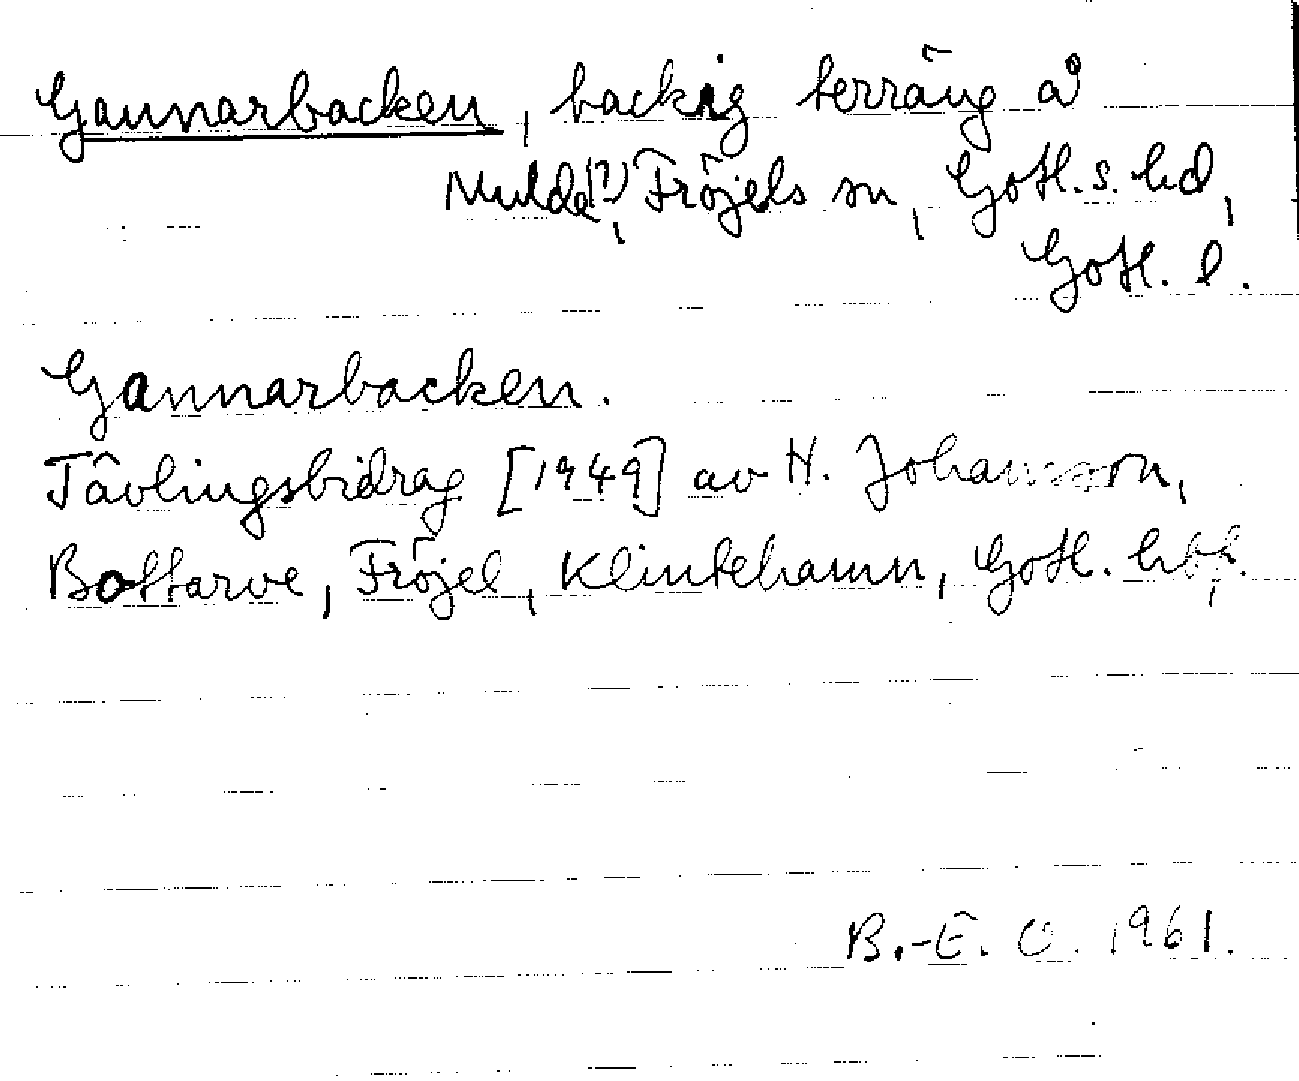 Gannarbacken, backig terräng å
Mulde(?), Fröjels sn, Gotl. s. hd,
Gotl. l.
Gannarbacken.
Tävlingsbidrag [1949] av H. Johansson,
Bottarve, Fröjel, Klintehamn, Gotl.
B.-E. O. 1961.